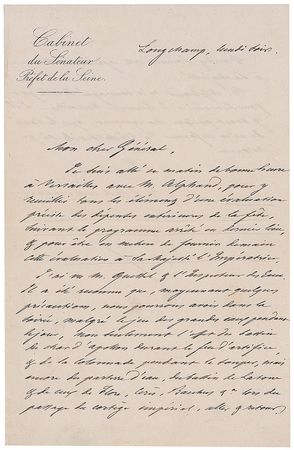 Cabinet
du Sénateur
Préfet de la Seine
Longchamp, lundi soir.
Mon cher Général,
Je suis allé ce matin de bonne heure
à Versailles avec M. Alphand, pour y
recueillir tous les élémens d'une évaluation
précise des dépenses extérieures de la fête,
suivant le programme arrêté en dernier lieu,
& pour être en mesure de fournir demain
cette évaluation à Sa Majesté l'Impératrice.
J'ai vu M. & l'Inspecteur des Eaux.
Il a été reconnu que, moyennant quelques
précautions, nous pourrions avoir dans la
soirée, malgré le jeu des grandes eaux pendant
le jour, non seulement l'effet du bassin
du char d'Apollon durant le feu d'artifice
& de la colonnade pendant le souper, mais
encore du parterre d'eau, du bassin de Latone
& de ceux de Flore, Cérès, Bacchus, &a lors du
passage du cortège impérial, aller & retour